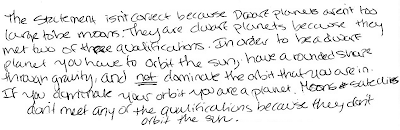 The statement isn't correct because Dwarf planets aren't too
large to be moons. They are dwarf planets because they
met two of these qualifications. In order to be a dwarf
planet you have to orbit the sun, have a rounded shape
through gravity, and not dominate the orbit that you are in.
If you dominate your orbit you are a planet. Moons satellites
don't meet any of the qualifications because they don't
orbit the sun.